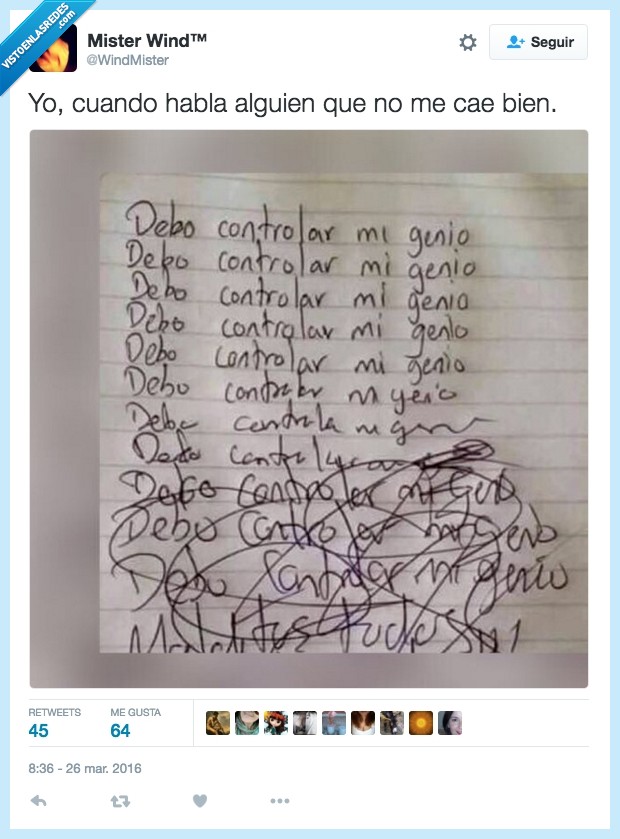 VISTOENLASREDES
.com
Mister Wind™
@WindMister
Seguir
Yo, cuando habla alguien que no me cae bien.
Debo controlar mi genio
Debo controlar mi genio
Debo controlar mi genio
Debo controlar mi genio
Debo controlar mi genio
Debo
Debo
Debo
Debo Controlar mi Genio
Debo Controlar mi genio
Debo Controlar mi genio
Malditos todos
RETWEETS
ME GUSTA
45
64
8:36 - 26 mar. 2016